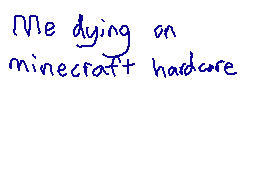 Me dying on
minecraft hardcore